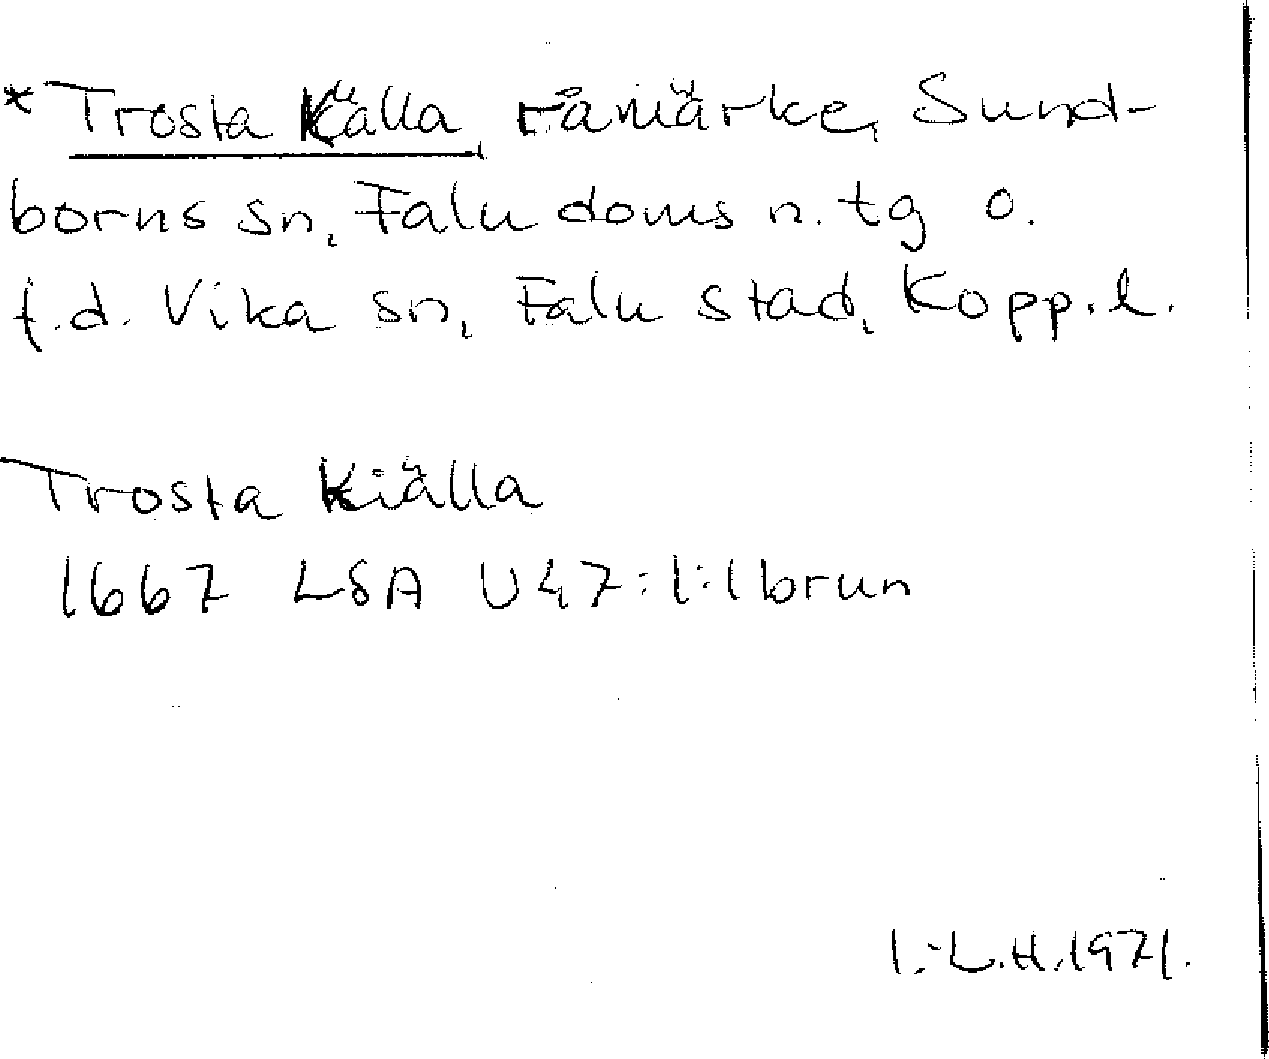 *Trosta Källa, råmärke, Sund-
borns sn, Falu doms n. tg o.
f.d. Vika sn, Falu stad, Kopp. l.
Trosta Kiälla
1667 LSA U47:1:1 brun
I.-L.H. 1971.